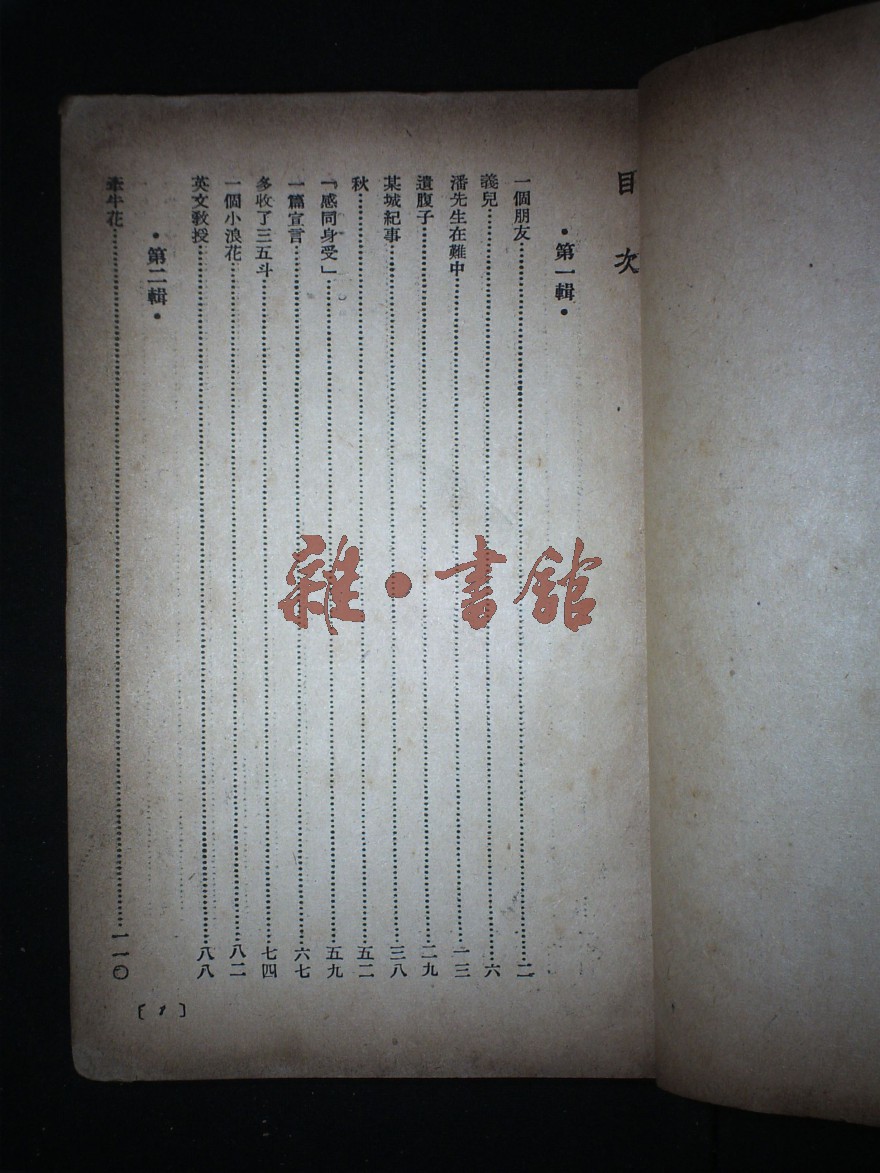 目次
•第一輯•
一個朋友……二
義兒……六
潘先生在難中……一三
遺腹子……二九
某城紀事……三八
秋……五二
「感同身受」……五九
一篇宣言……六七
多收了三五斗……七四
一個小浪花……八二
英文教授……八八
•第二輯•
牽牛花……一一〇
〔1〕
雜•書館